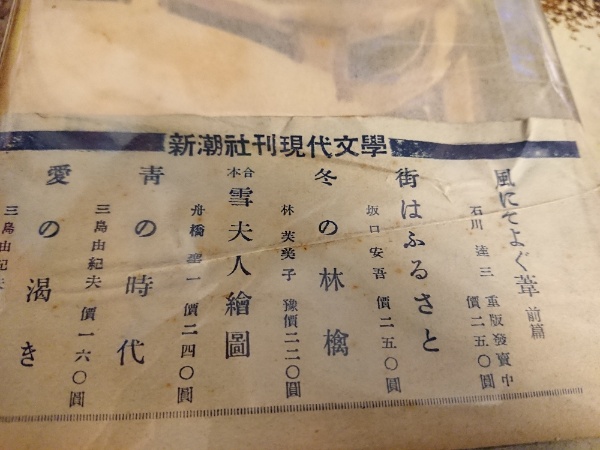 新潮社刊現代文學
風にそよぐ葦 前篇
石川達三 重版發賣中 價二五〇圓
街はふるさと
坂口安吾 價二五〇圓
冬の林檎
林芙美子 豫價二二〇圓
合本 雪夫人繪圖
舟橋聖一 價二四〇圓
青の時代
三島由紀夫 價一六〇圓
愛の渇き
三島由紀夫